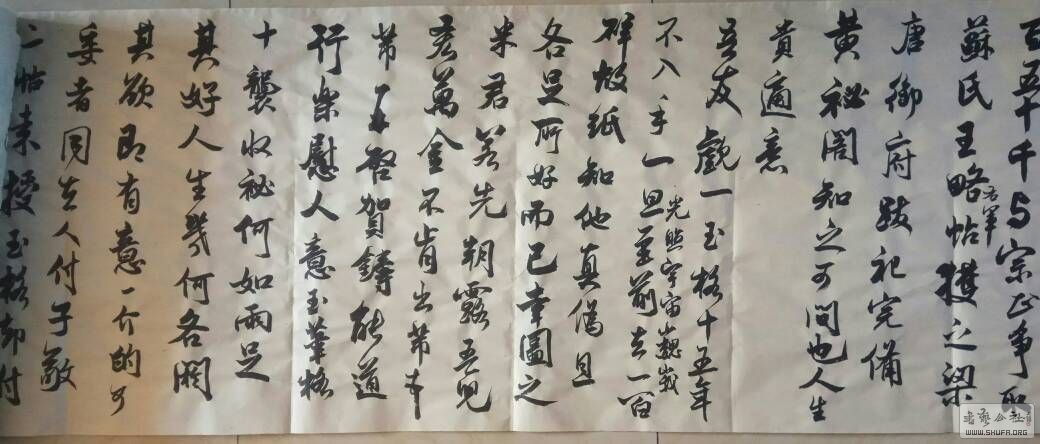 百五十千与宗正争取
蘇氏王略帖右軍獲之梁
唐御府跋記完備
黄祕閣知之可問也人生
貴適意
吾友覷一玉格十五年
不入手一旦光照宇宙巍峩至前去一百
碎故紙知他真偽且
各足所好而已幸圖之
米君若先朝露吾兒
吝萬金不肯出芾本
芾頓首啓賀鑄能道
行樂慰人意玉筆格
十襲收祕何如兩足
其好人生幾何各閼
其欲即有意一介的可
委者同去人付子敬
二帖来授玉格却付
书艺公社
WWW.SHUFA.ORG